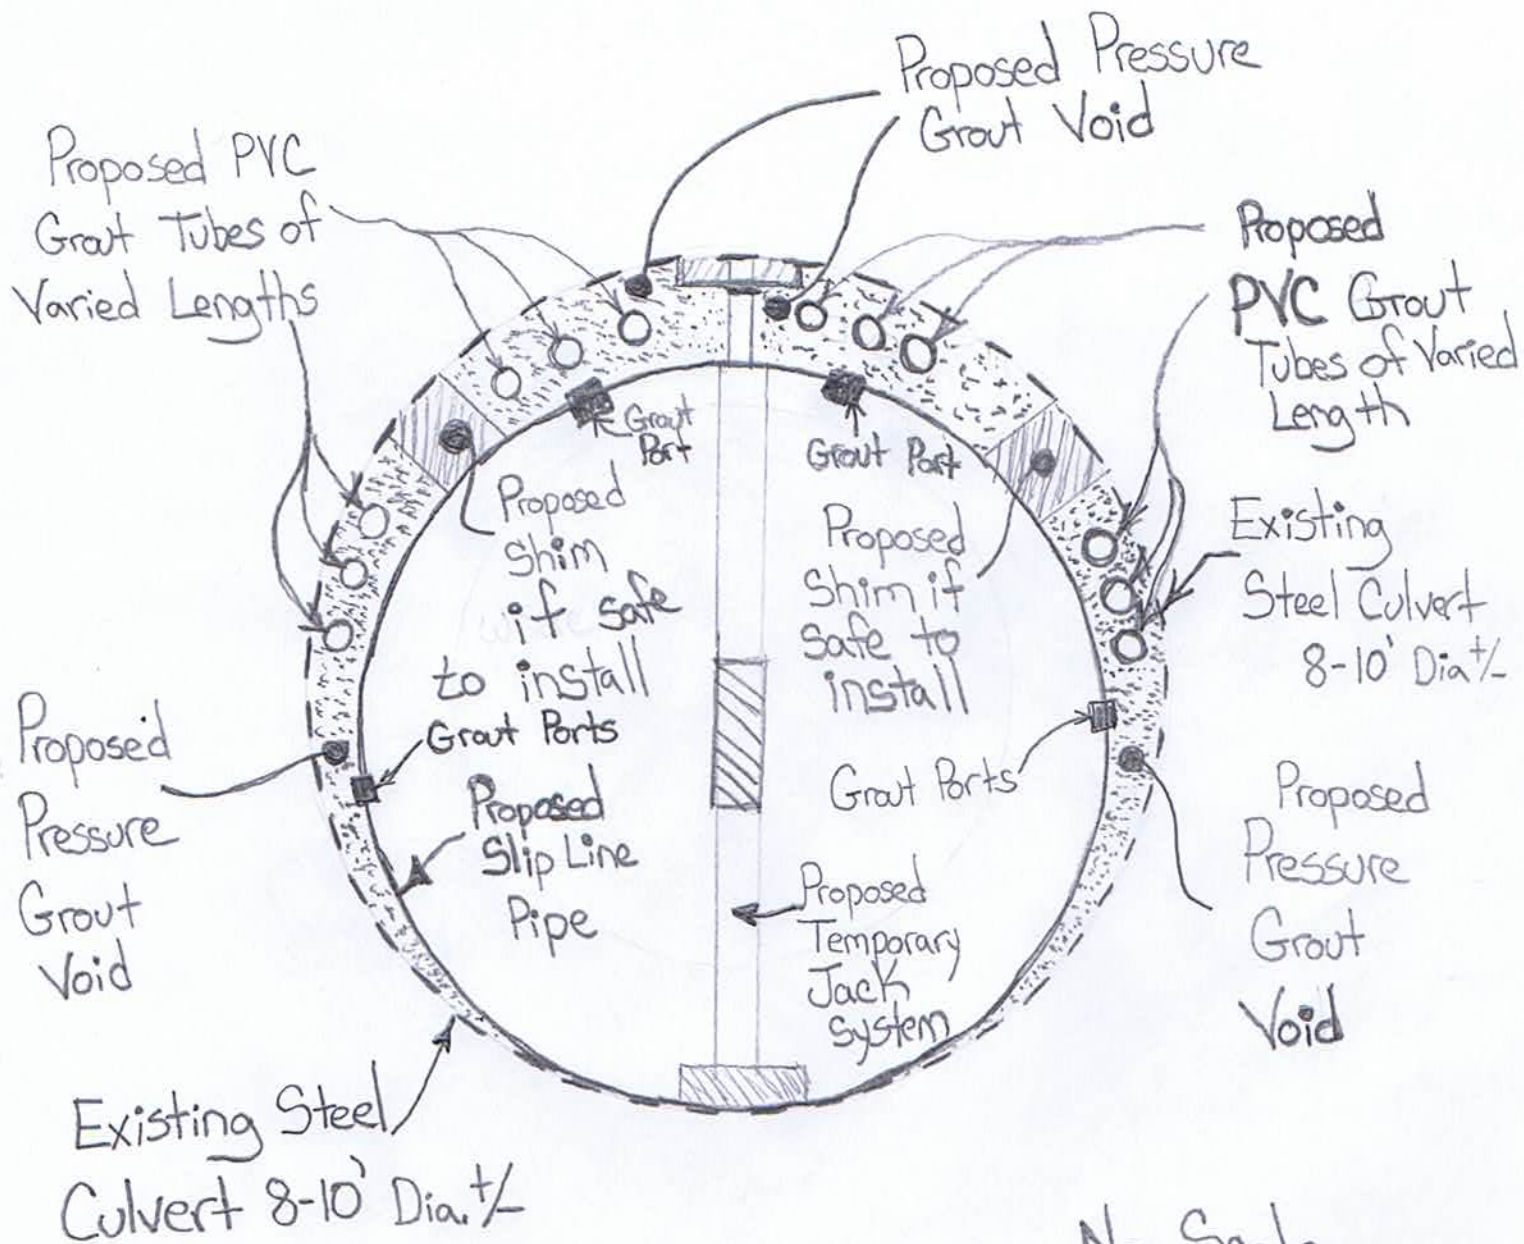 Proposed Pressure
Grout Void
Proposed PVC
Grout Tubes of
Varied Lengths
Proposed
PVC Grout
Tubes of Varied
Length
Grout
Port
Grout Port
Proposed
Shim
if safe
to install
Proposed
Shim if
safe to
install
Existing
Steel Culvert
8-10' Dia +/-
Proposed
Pressure
Grout
Void
Grout Ports
Proposed
Slip Line
Pipe
Grout Ports
Proposed
Temporary
Jack
system
Proposed
Pressure
Grout
Void
Existing Steel
Culvert 8-10' Dia. +/-